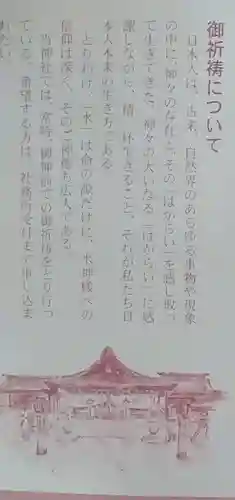 御祈祷について
日本人は、古来、自然界のあらゆる事物や現象
の中に、神々の存在と、その「はからい」を感じ取っ
て生きてきた。神々の大いなる「はからい」に感
謝しながら、精一杯生きること、それが私たち日
本人本来の生き方である。
とりわけ、「水」は命の源だけに、水神様への
信仰は深く、そのご神徳も広大である。
当神社では、常時、御神前での御祈祷をとり行っ
ている。希望する方は、社務所受付まで申し込ま
れたい。